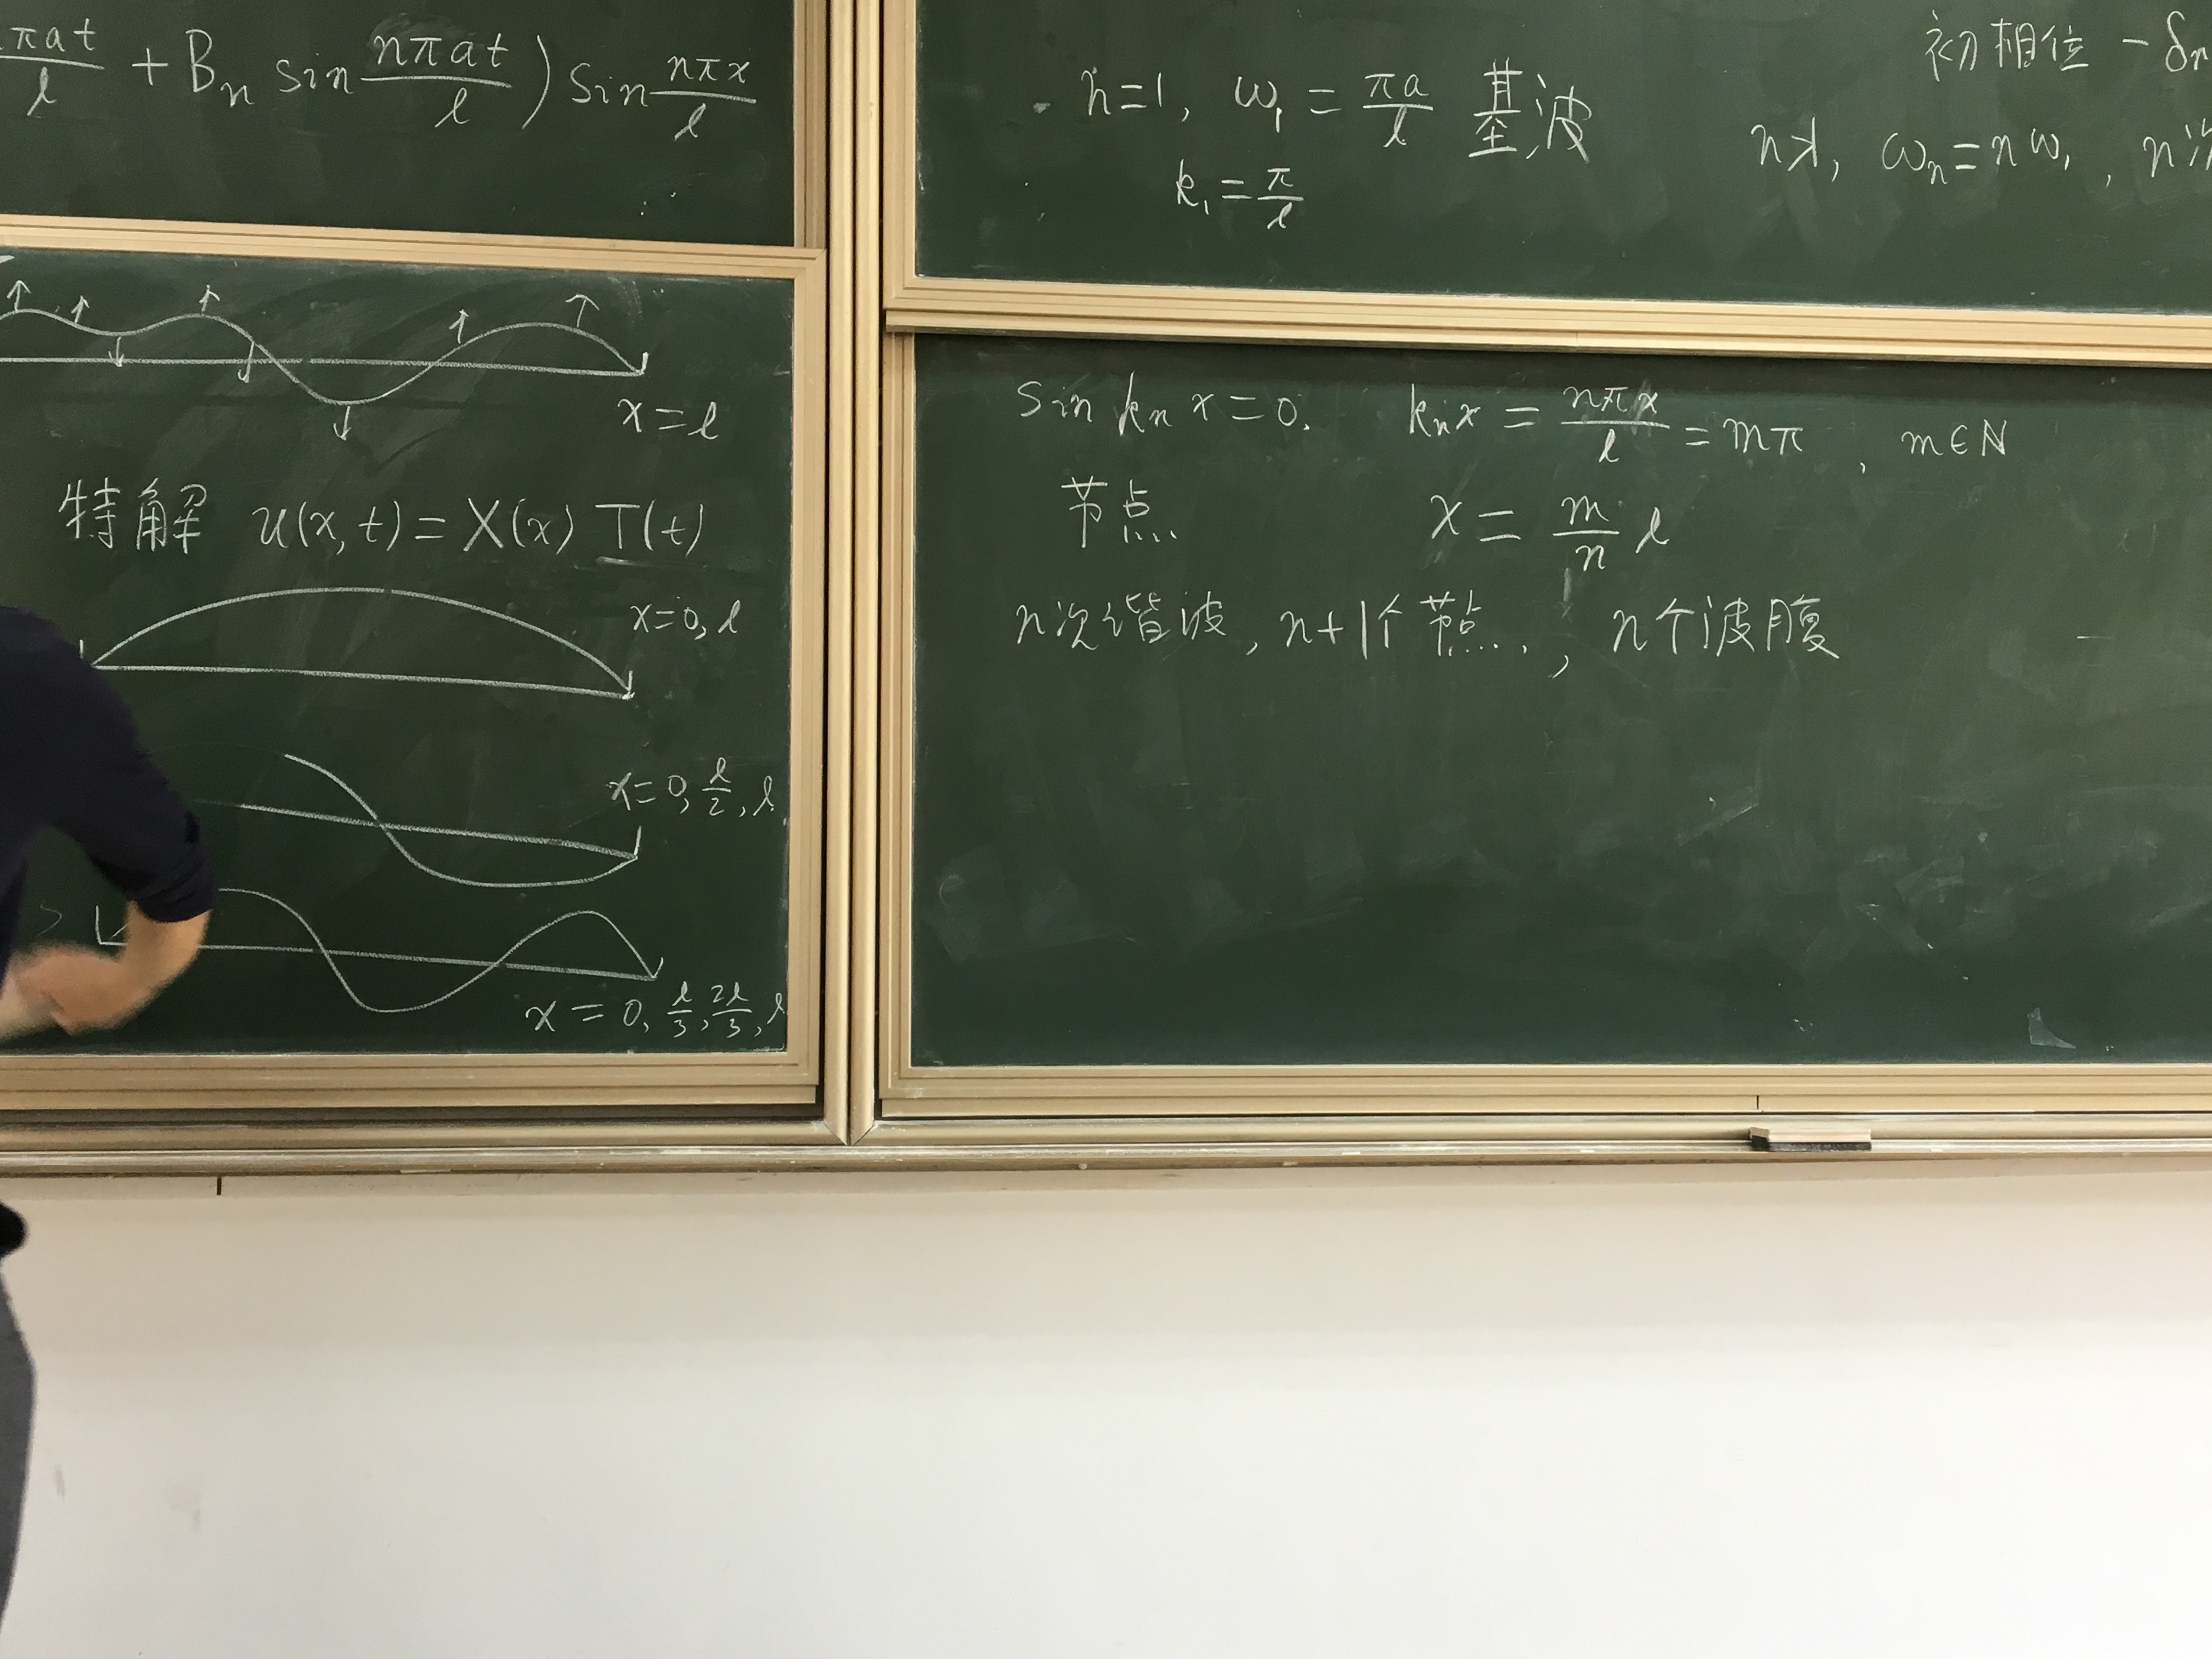 πat/l + Bₙ sin nπat/l ) sin nπx/l
x = l
特解 u(x, t) = X(x) T(t)
x=0, l
x=0, l/2, l
x = 0, l/3, 2l/3, l
初相位 -δₙ
n=1, ω₁ = πa/l 基波
k₁ = π/l
ωₙ = nω₁, n
sin kₙ x = 0. kₙx = nπx/l = mπ, m∈N
节点 x = m/n l
n次谐波, n+1个节点, n个波腹